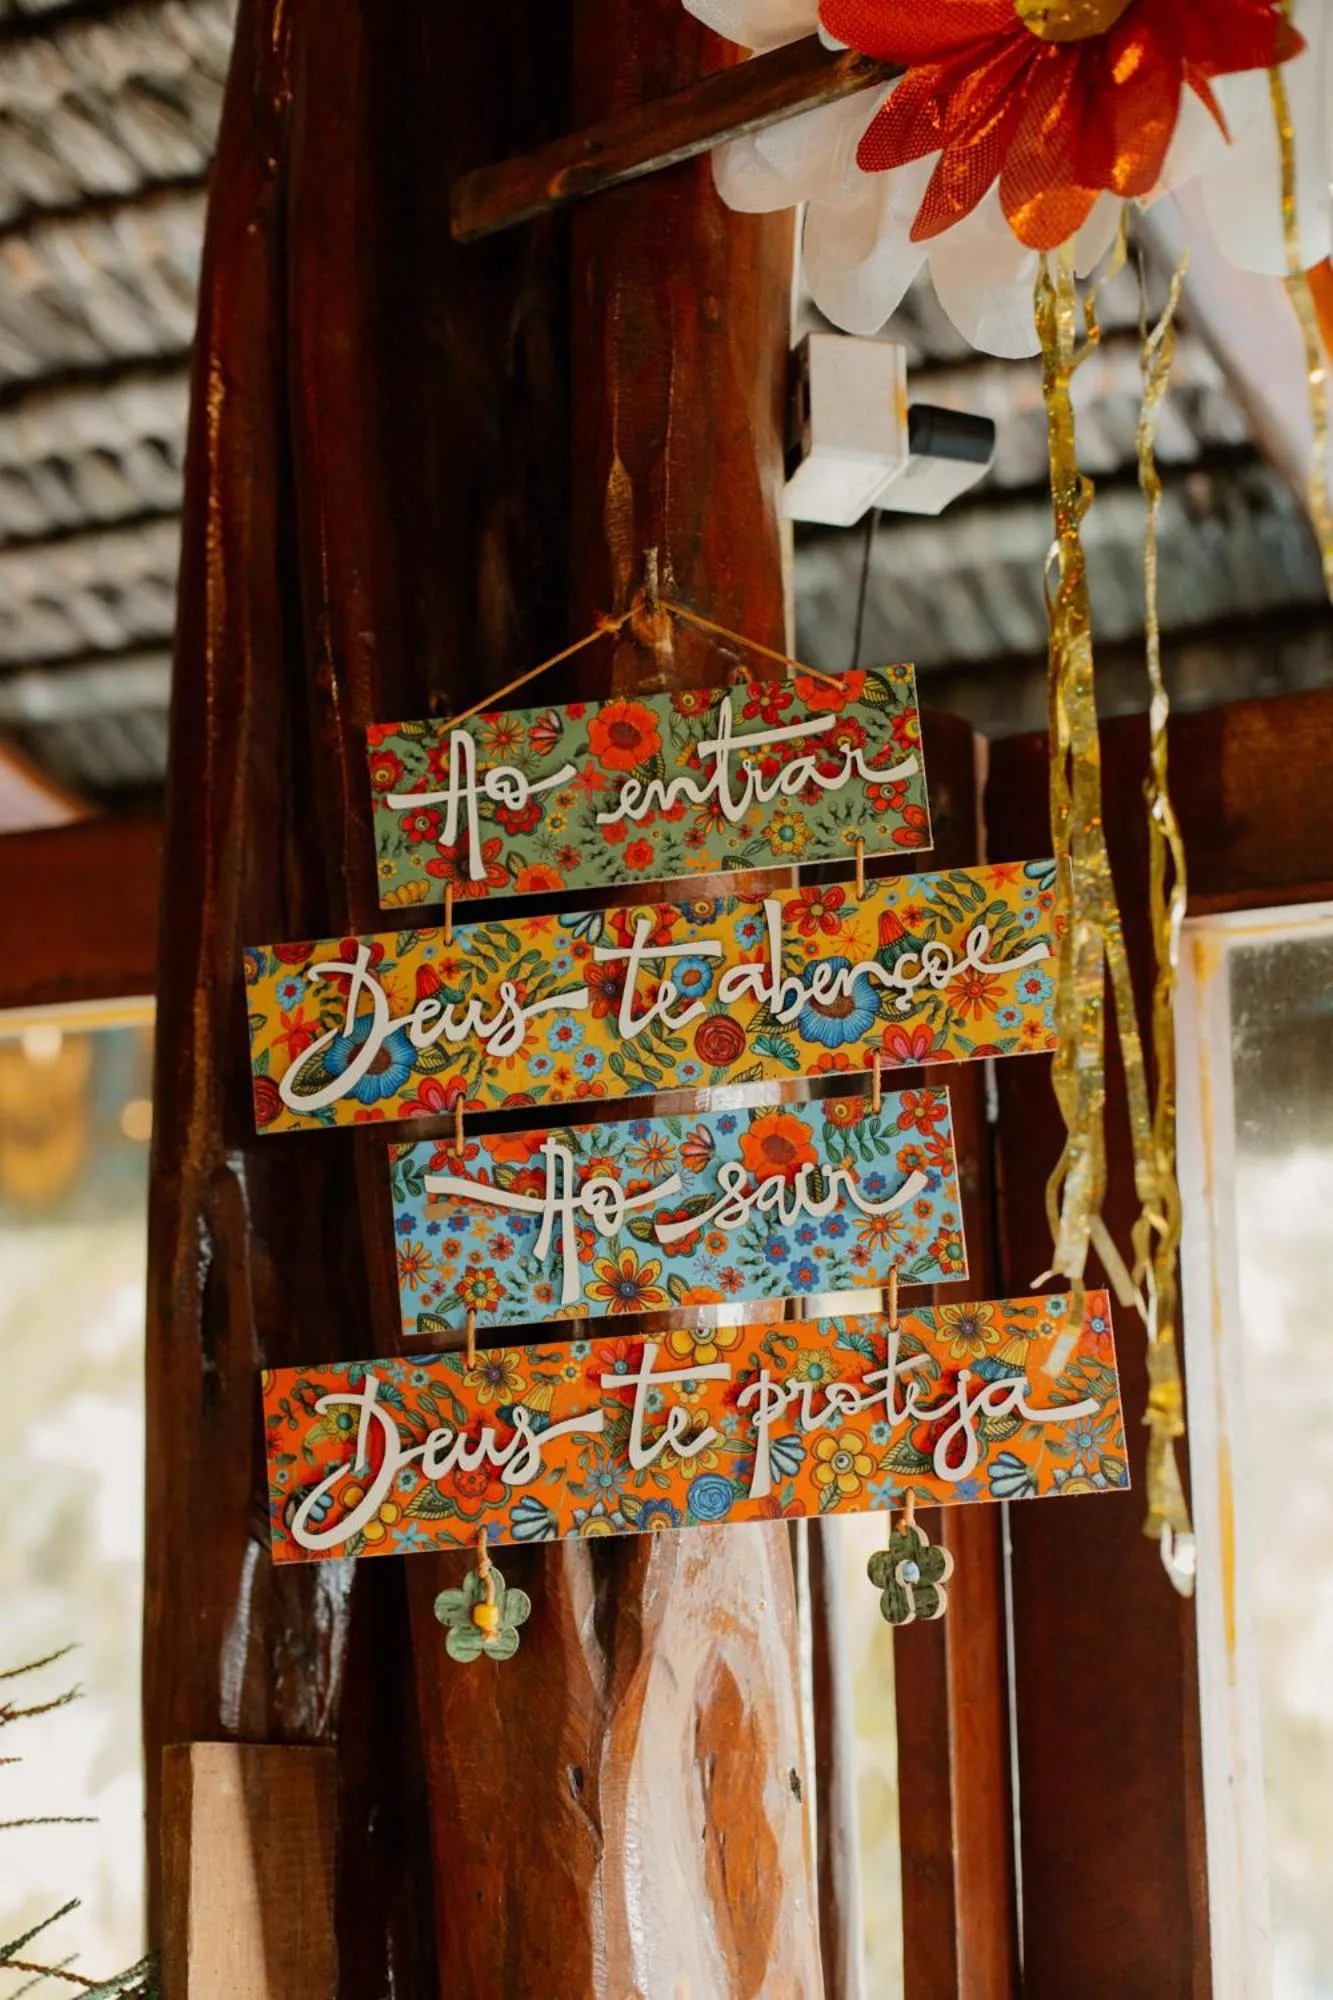 Ao entrar
Deus te abençoe
Ao sair
Deus te proteja